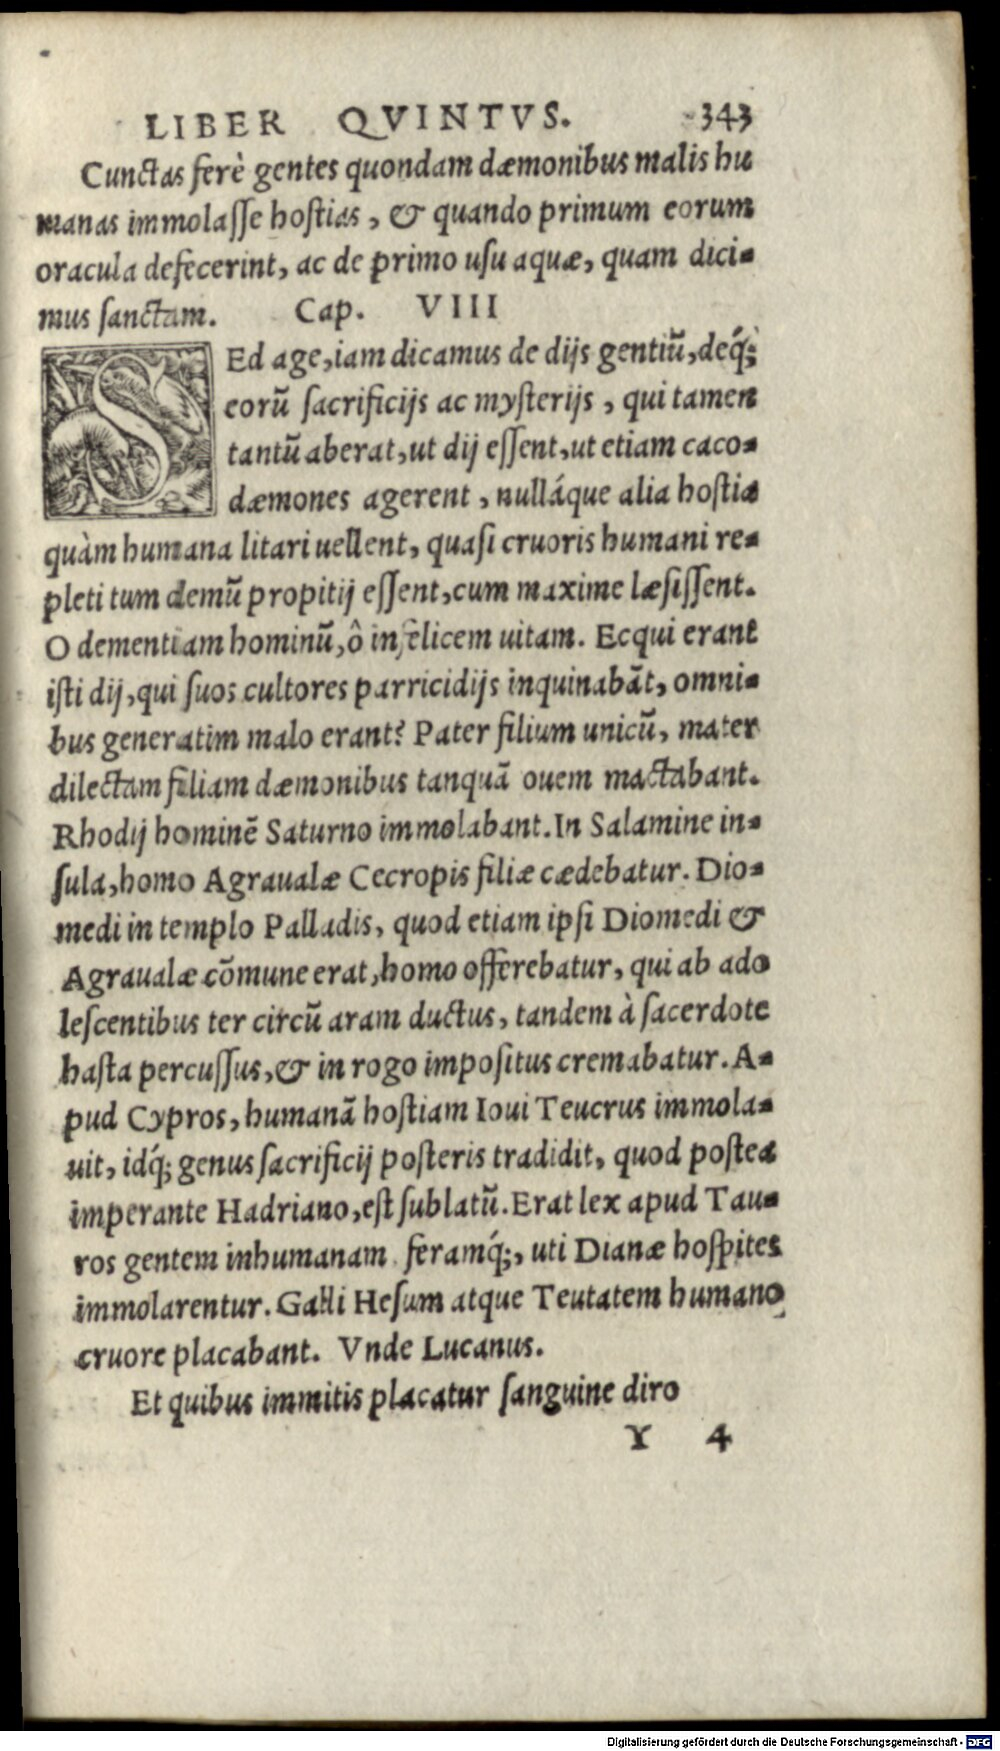 LIBER QVINTVS. 343
Cunctas ferè gentes quondam dæmonibus malis hu
manas immolaſſe hoſtias, & quando primum eorum
oracula defecerint, ac de primo uſu aquæ, quam dici-
mus ſanctam. Cap. VIII
SEd age, iam dicamus de dijs gentiũ, deq́;
eorũ ſacrificijs ac myſterijs, qui tamen
tantũ aberat, ut dij eſſent, ut etiam caco-
dæmones agerent, nulláque alia hoſtia
quàm humana litari uellent, quaſi cruoris humani re-
pleti tum demũ propitij eſſent, cum maxime læſiſſent.
O dementiam hominũ, ô infelicem uitam. Ecqui erant
iſti dij, qui ſuos cultores parricidijs inquinabãt, omni-
bus generatim malo erant? Pater filium unicũ, mater
dilectam filiam dæmonibus tanquã ouem mactabant.
Rhodij hominẽ Saturno immolabant. In Salamine in-
ſula, homo Agraualæ Cecropis filiæ cædebatur. Dio-
medi in templo Palladis, quod etiam ipſi Diomedi &
Agraualæ cõmune erat, homo offerebatur, qui ab ado
leſcentibus ter circũ aram ductus, tandem à ſacerdote
haſta percuſſus, & in rogo impoſitus cremabatur. A-
pud Cypros, humanã hoſtiam Ioui Teucrus immola-
uit, idq́; genus ſacrificij poſteris tradidit, quod poſtea
imperante Hadriano, eſt ſublatũ. Erat lex apud Tau-
ros gentem inhumanam feramq́;, uti Dianæ hoſpites
immolarentur. Galli Heſum atque Teutatem humano
cruore placabant. Vnde Lucanus.
Et quibus immitis placatur ſanguine diro
Y 4
Digitalisierung gefördert durch die Deutsche Forschungsgemeinschaft - DFG